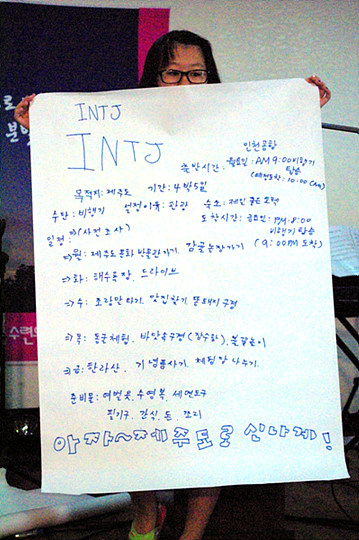 INTJ
INTJ
인천공항
출발시간: 월요일: AM 9:00 비행기 탑승
(제주도착: 10:00 (AM)
목적지: 제주도 기간: 4박5일
수단: 비행기 설정이유: 관광 숙소: 제일 좋은 호텔
일정: →(사전조사) 도착시간: 금요일: PM 8:00 비행기 탑승
(9:00PM 도착)
⇒월: 제주도 문화 박물관가기. 감귤농장가기
⇒화: 해수욕장, 드라이브
⇒수: 조랑말타기, 맛집찾기, 똥돼지 구경
⇒목: 동굴체험, 바닷속구경(잠수함), 불꽃놀이
⇒금: 한라산, 기념품사기, 체험담 나누기.
준비물: 여벌옷, 수영복, 세면도구
필기구, 간식, 돈, 쪼리
아자~제쭈도로 신나게!